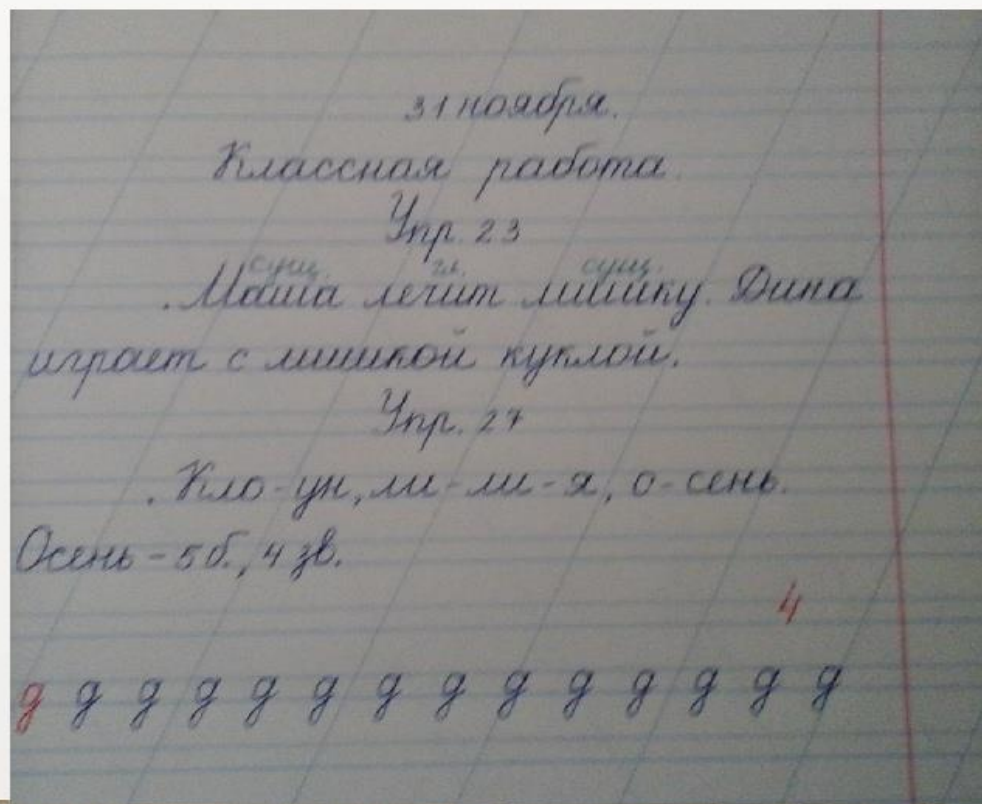 31 ноября.
Классная работа.
Упр. 23
сущ. гл. сущ.
Маша лечит мишку. Дина
играет с мишкой куклой.
Упр. 27
Кло-ун, ли-ли-я, о-сень.
Осень - 5 б., 4 зв.
4
д д д д д д д д д д д д д д